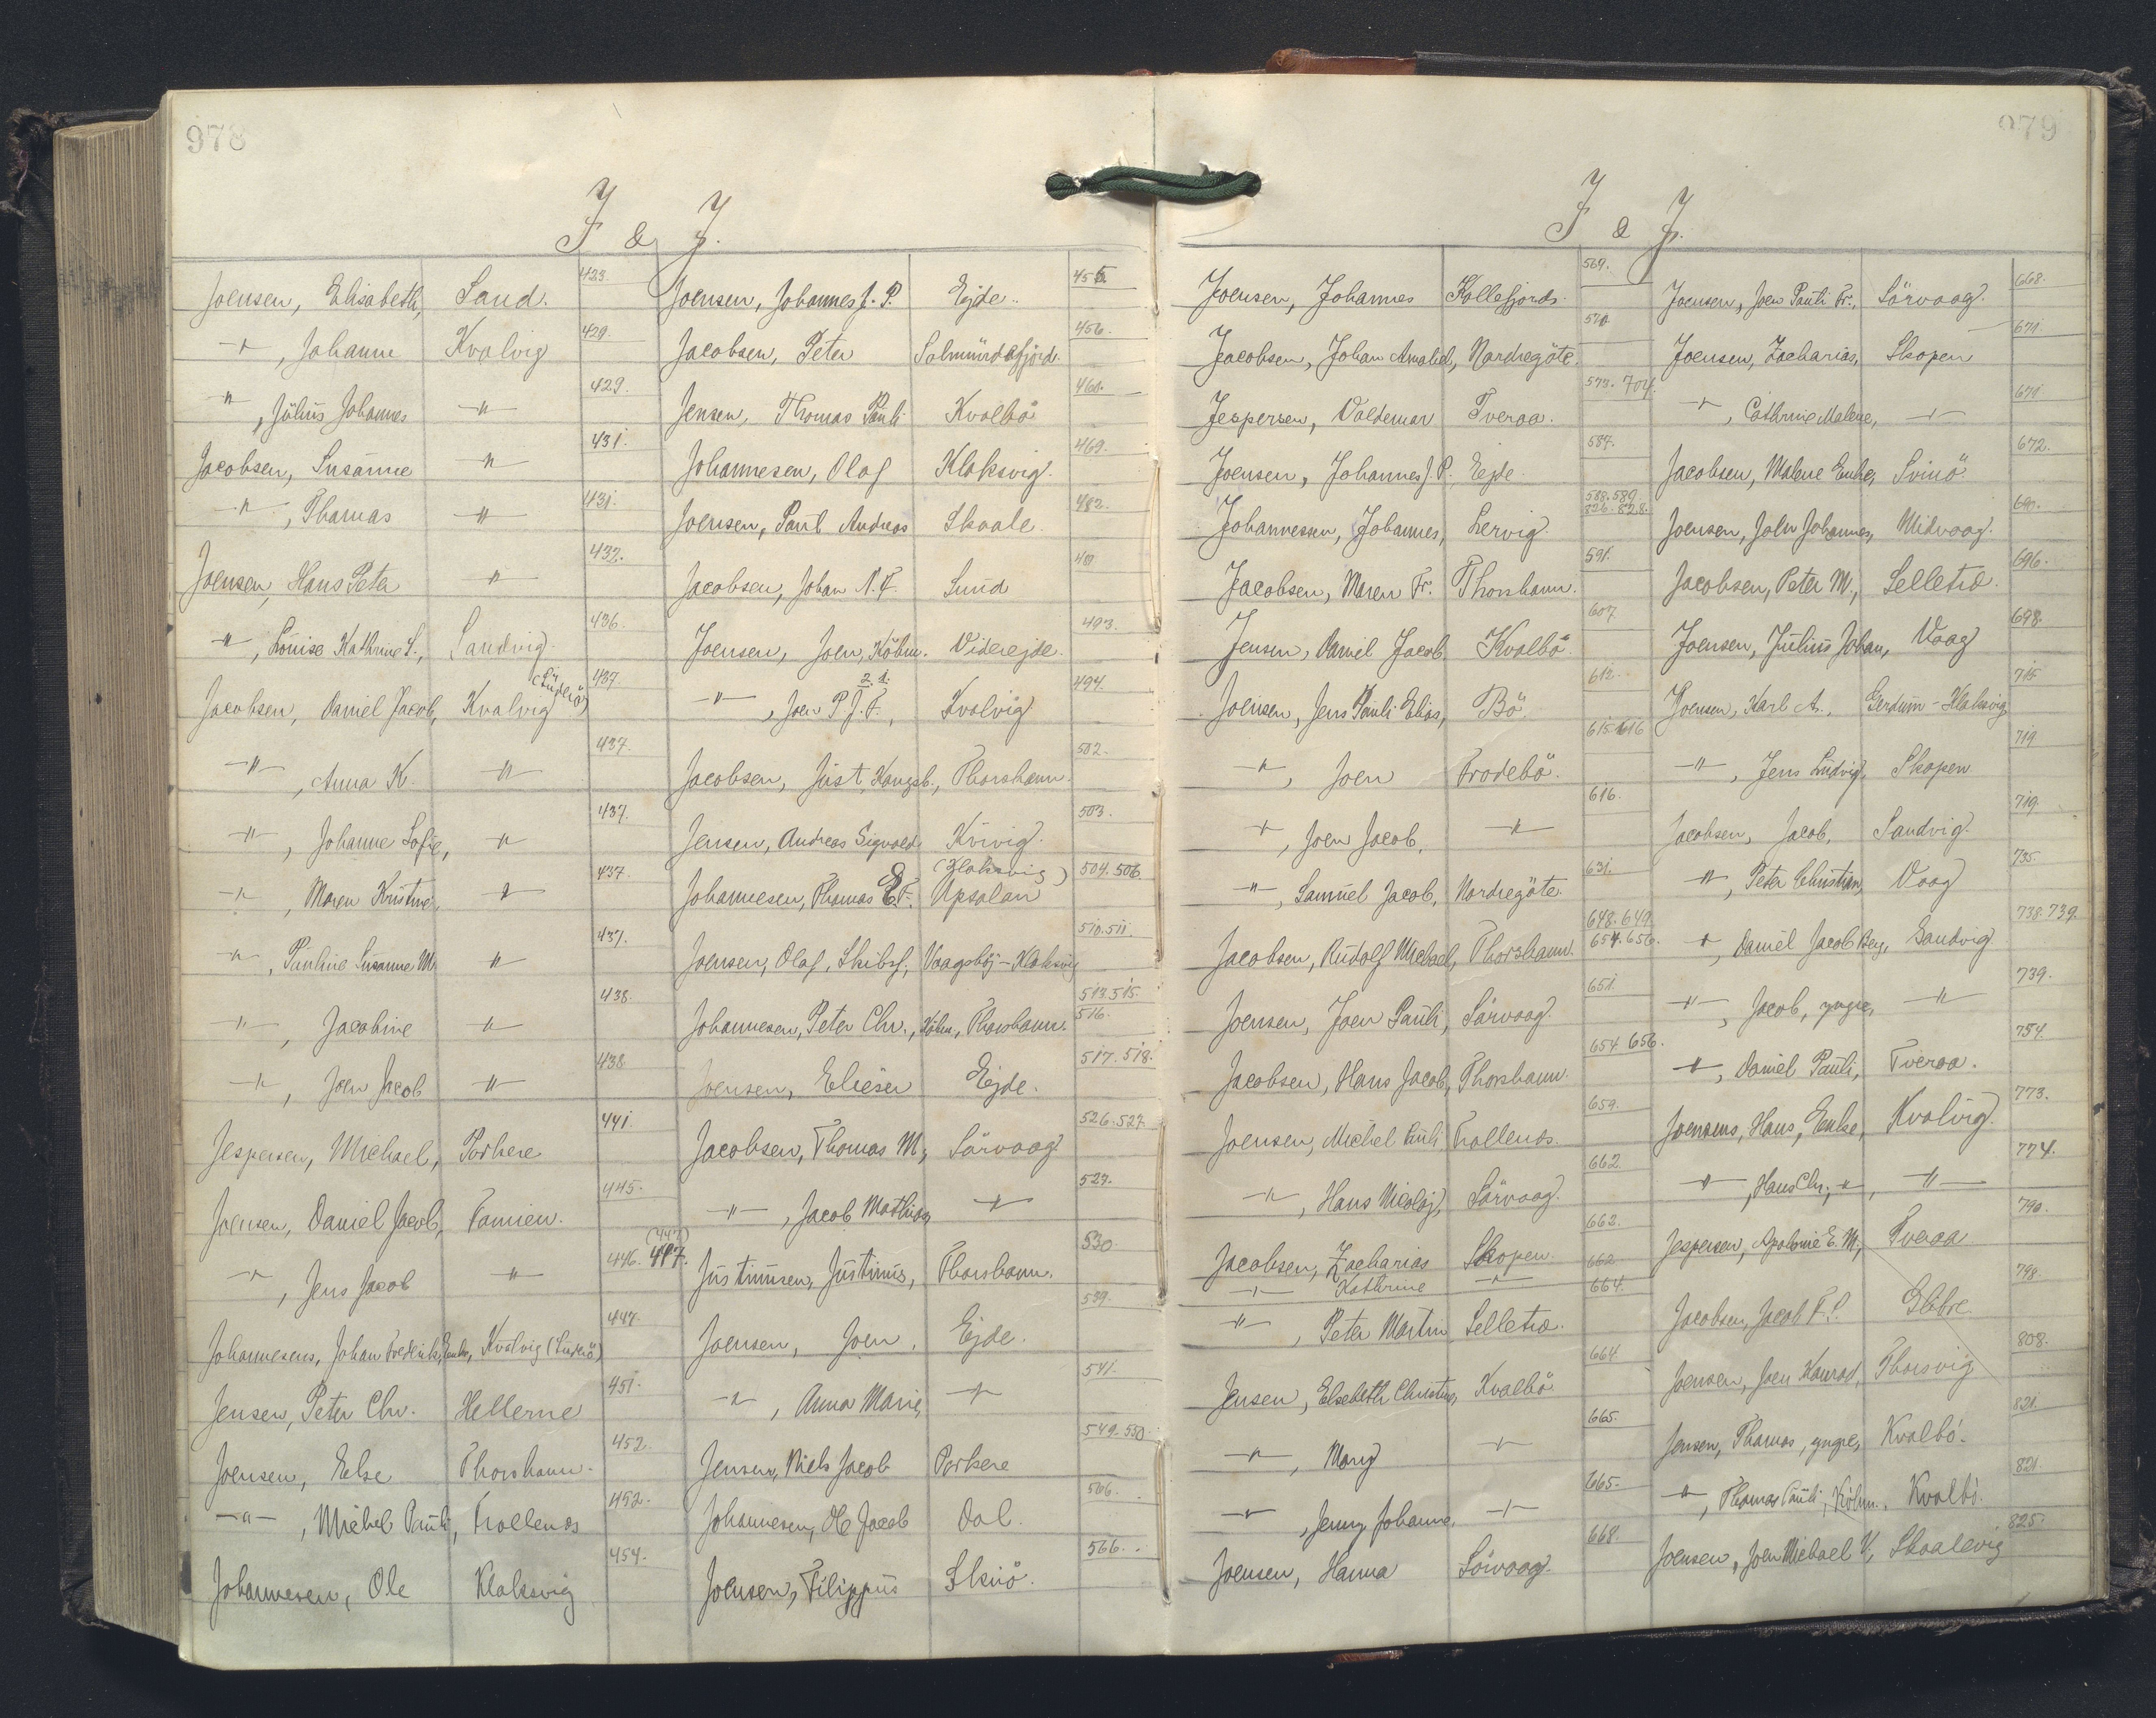 978
I & J.
Joensen, Elisabeth, Sand. 423.
-"-, Johanne Kvalvig 429.
-"-, Julius Johannes -"- 429.
Jacobsen, Susanne -"- 431.
-"-, Thomas -"- 431.
Joensen, Hans Peter -"- 432.
-"-, Louise Kathrine S., Sandvig 436.
Jacobsen, Daniel Jacob, Kvalvig (Suderö) 437
-"-, Anna K. -"- 437.
-"-, Johanne Sofie, -"- 437.
-"-, Maren Kristine, -"- 437.
-"-, Pauline Susanne M. -"- 437.
-"-, Jacobine -"- 438.
-"-, Joen Jacob -"- 438
Jespersen, Michael, Porkere 441.
Joensen, Daniel Jacob, Famien. 445.
-"-, Jens Jacob -"- 446. 447. (447)
Johannesens, Johan Frederik, Enke, Kvalvig (Suderö) 447.
Jensen, Peter Chr. Hellerne 451.
Joensen, Else Thorshavn. 452.
-"-, Michel Pauli, Trollenæs 452.
Johannesen, Ole Klaksvig 454.
Joensen, Johannes J. P. Ejde. 455.
Jacobsen, Peter Solmundefjord 456.
Jensen, Thomas Pauli Kvalbö 460.
Johannesen, Olaf Klaksvig. 469.
Joensen, Paul Andreas Skaale. 482.
Jacobsen, Johan N. F. Sund
Joensen, Joen, Köbm. Viderejde. 493.
-"-, Joen P. J. F., 2. 1. Kvalvig 494.
Jacobsen, Just, Kongsb., Thorshavn. 502.
Jensen, Andreas Sigvald Kvivig. 503.
Johannesen, Thomas E. F. (Klaksvig) Upsalan 504. 506.
Joensen, Olaf, Skibsf., Vaagsböj - Klaksvig 510. 511.
Johannesen, Peter Chr., Köbm., Thorshavn. 513. 515. 516.
Joensen, Elieser Ejde. 517. 518.
Jacobsen, Thomas M., Sörvaag 526. 527.
-"-, Jacob Mathias -"- 527.
Justinusen, Justinus, Thorshavn. 530.
Joensen, Joen, Ejde. 539.
-"-, Anna Marie, -"- 541.
Jensen, Niels Jacob Porkere 549. 550.
Johannesen, Ole Jacob Dal. 566.
Joensen, Filippus Skuö. 566.
979
I & J.
Joensen, Johannes Kollefjord. 569.
Jacobsen, Johan Amaliel, Nordregöte. 570.
Jespersen, Valdemar Tveraa. 573. 704.
Joensen, Johannes J. P. Ejde. 587.
Johannessen, Johannes, Lervig. 588. 589. 826. 828.
Jacobsen, Maren Fr. Thorshavn. 591.
Jensen, Daniel Jacob, Kvalbö. 607
Joensen, Jens Pauli Elias, Bö. 612.
-"-, Joen Frodebö. 615. 616
-"-, Joen Jacob, -"- 616.
-"-, Samuel Jacob, Nordregöte. 631.
Jacobsen, Rudolf Michael, Thorshavn. 648. 649. 654. 656.
Joensen, Joen Pauli, Sörvaag. 651.
Jacobsen, Hans Jacob, Thorshavn. 654. 656.
Joensen, Michel Pauli Trollenæs. 659.
-"-, Hans Nicolaj, Sörvaag. 662.
Jacobsen, Zacharias Skopen. 662.
-"- Kathrine -"- 662
-"-, Peter Martin Selletræ. 664.
Jensen, Elsebeth Christine, Kvalbö 664
-"-, Mary -"- 665.
-"-, Jenny Johanne, -"- 665.
Joensen, Hanna Sörvaag. 668.
Joensen, Joen Pauli Fr., Sörvaag. 668.
Joensen, Zacharias, Skopen 671.
-"-, Cathrine Malene, -"- 671
Jacobsen, Malene Enke, Svinö 672.
Joensen, John Johannes, Midvaag.
Jacobsen, Peter M., Selletræ. 696.
Joensen, Julius Johan, Vaag 698.
Joensen, Karl A., Gerdum - Klaksvig 715
-"-, Jens Ludvig, Skopen 719
Jacobsen, Jacob, Sandvig. 719
-"-, Peter Christian, Vaag 735.
-"-, Daniel Jacob Benj., Sandvig 738. 739.
-"-, Jacob, yngre, -"- 739.
-"-, Daniel Pauli, Tveraa. 754.
Joensens, Hans, Enke, Kvalvig. 773.
-"-, Hans Chr., -"-, -"- 774.
Jespersen, Apolonie E. M., Tveraa 790.
Jacobsen, Jacob F. Glibre. 798.
Joensen, Joen Konrad, Thorsvig 808.
Jensen, Thomas, yngre, Kvalbö. 821.
-"-, Thomas Pauli, Köbm. Kvalbö. 821.
Joensen, Joen Michael V, Skaalevig 825.